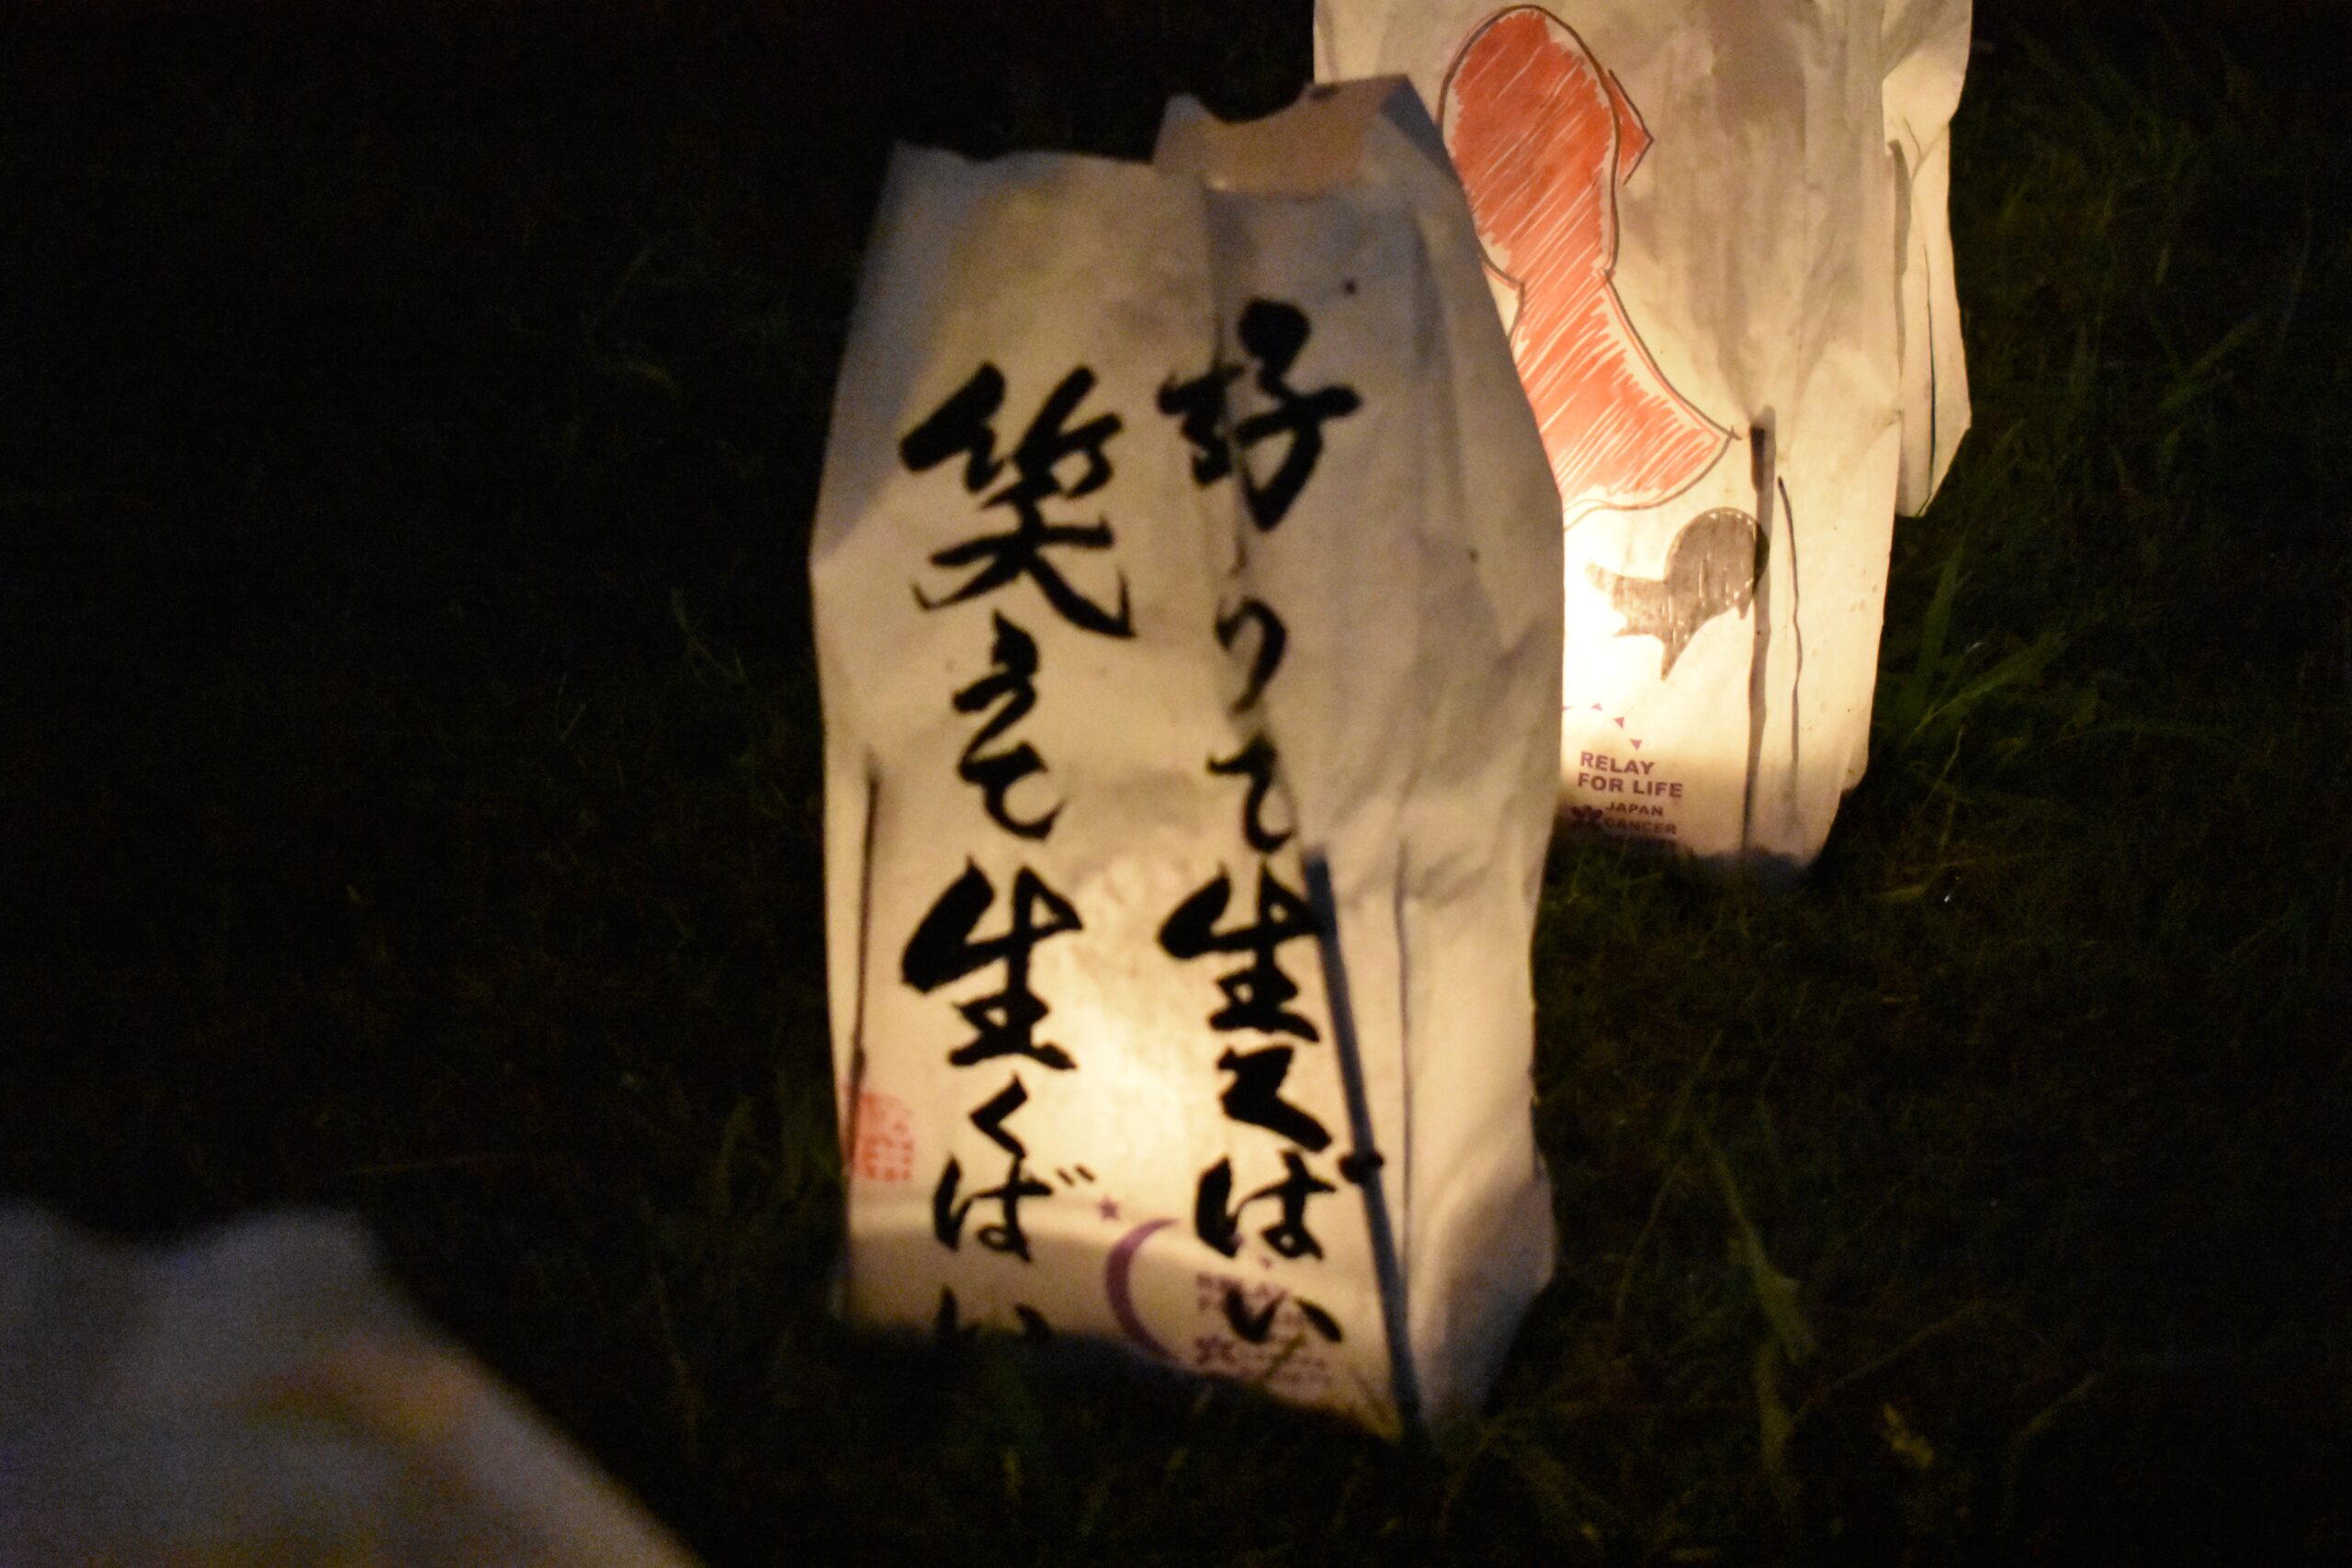 好いて生くばい
笑うて生くばい
RELAY
FOR LIFE
JAPAN
CANCER